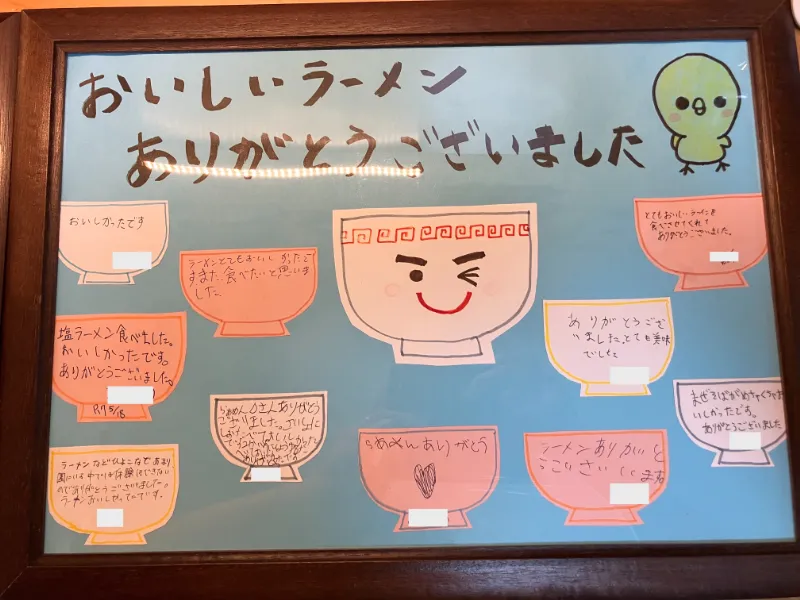 おいしいラーメン
ありがとうございました
おいしかったです
ラーメンとてもおいしかったで
す。また食べたいと思いま
した
とてもおいしいラーメンを
食べさせてくれて
ありがとうございました。
塩ラーメン食べました。
おいしかったです。
ありがとうございました。
R.7 5/18
ありがとうござ
いました、とても美味
でした
らぁめん
さんありがとう
ございました。
まぜそばがめちゃくちゃお
いしかったです。
ありがとうございました
ラーメンなど
ので ありがとうございました。
ラーメンおいしかったです。
らぁめんありがとう
ラーメンありがと